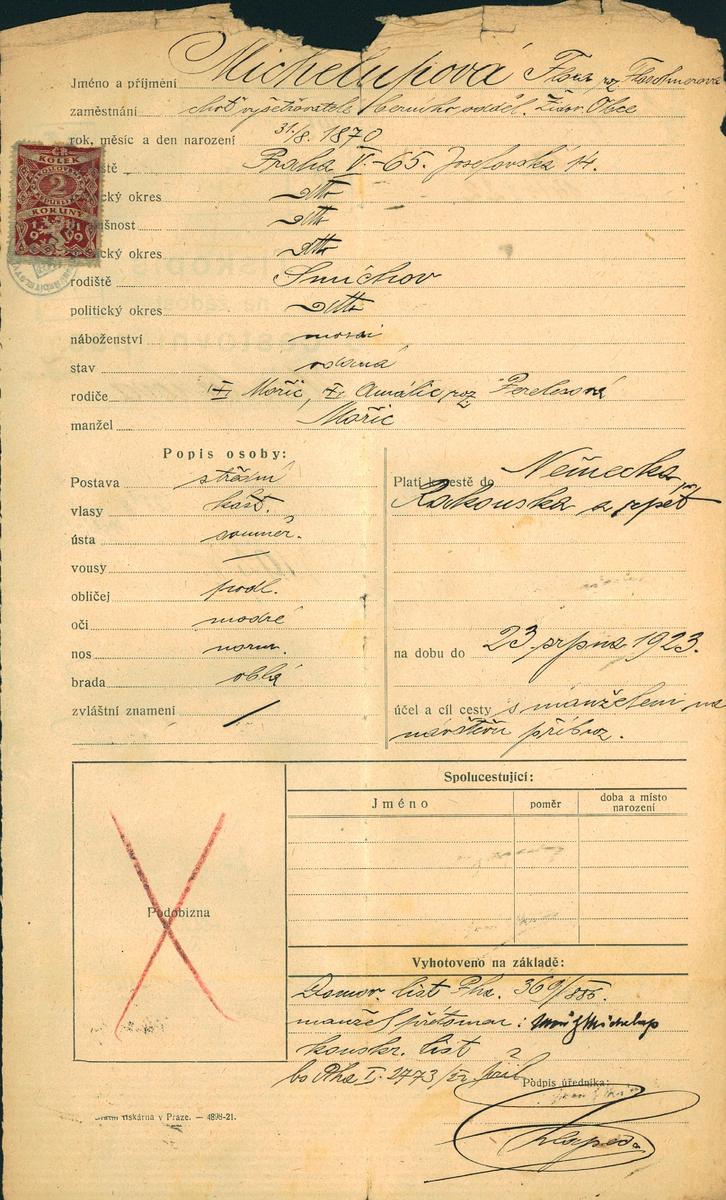 Jméno a příjmení Michelupová Flora roz. Flaschnerová
zaměstnání choť vyšetřovatele odděl. Židov. Obce
rok, měsíc a den narození 31/8. 1870
ště Praha V-65. Josefovská 14.
ický okres dtto
ušnost dtto
ický okres dtto
rodiště Smíchov
politický okres dtto
náboženství mosai
stav vdaná
rodiče Mořic, Amálie roz. Perelesová
manžel Mořic
ČR
KOLEK
2
KORUNY
Popis osoby:
Postava střední
vlasy kašt.
ústa souměr.
vousy —
obličej podl.
oči modré
nos norm.
brada oblá
zvláštní znamení /
Platí k cestě do Německa,
Rakouska a zpět
na dobu do 23. srpna 1923.
účel a cíl cesty s manželem na
návštěvu příbuz.
Spolucestující:
Jméno poměr doba a místo narození
Podobizna
Vyhotoveno na základě:
Domov. list Pha. 369/886.
manžel přítomen: Michelup
konskr. list
Pha I. 2473/22
Podpis úředníka:
tiskárna v Praze. — 4898-21.